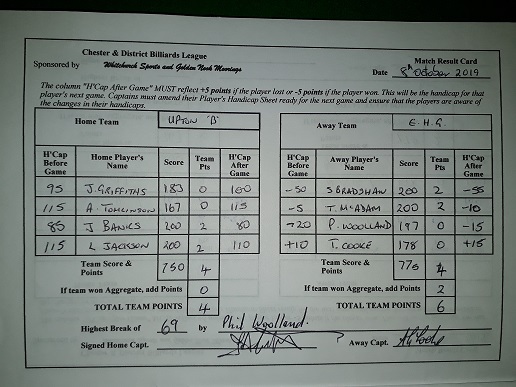 Chester & District Billiards League
Sponsored by Whitchurch Sports and Golden Nook Moorings
Match Result Card
Date 8th October 2019
The column "H'Cap After Game" MUST reflect +5 points if the player lost or -5 points if the player won. This will be the handicap for that
player's next game. Captains must amend their Player's Handicap Sheet ready for the next game and ensure that the players are aware of
the changes in their handicaps.
Home Team UPTON 'B'
H'Cap Before Game Home Player's Name Score Team Pts H'Cap After Game
95 J. GRIFFITHS 183 0 100
115 A TOMLINSON 167 0 115
85 J BANKS 200 2 80
115 L JACKSON 200 2 110
Team Score & Points 750 4
If team won Aggregate, add Points 0
TOTAL TEAM POINTS 4
Away Team E.H.G.
H'Cap Before Game Away Player's Name Score Team Pts H'Cap After Game
-50 S BRADSHAW 200 2 -55
-5 T. McADAM 200 2 -10
-20 P. WOOLLAND 197 0 -15
+10 T. COOKE 178 0 +15
Team Score & Points 775 4
If team won Aggregate, add Points 2
TOTAL TEAM POINTS 6
Highest Break of 69 by Phil Woolland.
Signed Home Capt. Away Capt.